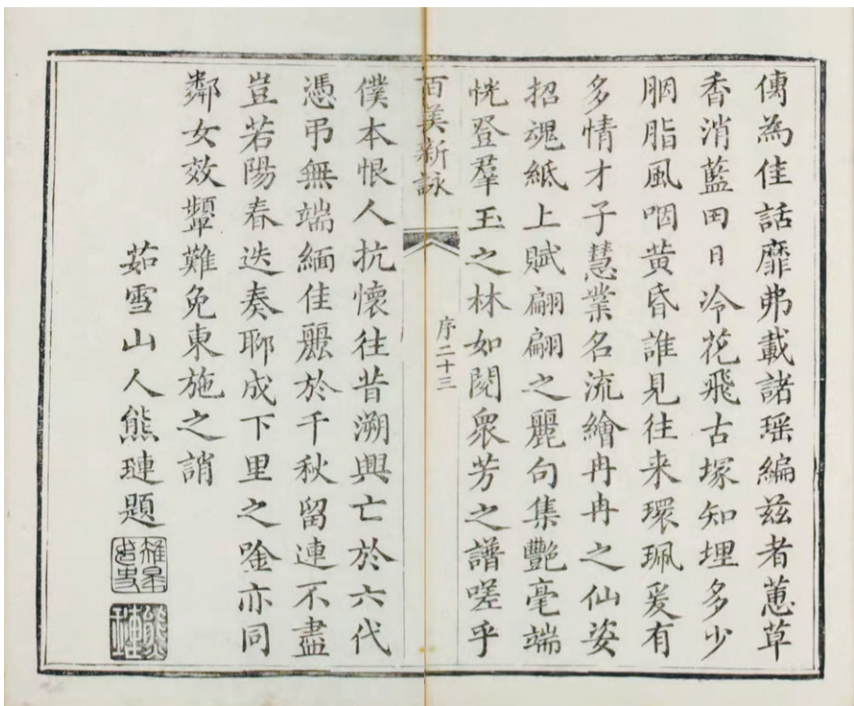 傳為佳話靡弗載諸瑶編兹者蕙草
香消藍田日冷花飛古塚知埋多少
胭脂風咽黄昏誰見往来環珮爰有
多情才子慧業名流繪冉冉之仙姿
招魂紙上賦翩翩之麗句集艷毫端
恍登羣玉之林如閱衆芳之譜嗟乎
百美新詠
序二十三
僕本恨人抗懷往昔溯興亡於六代
憑弔無端緬佳麗於千秋留連不盡
豈若陽春迭奏聊成下里之唫亦同
鄰女效顰難免東施之誚
茹雪山人熊璉題
熊璉